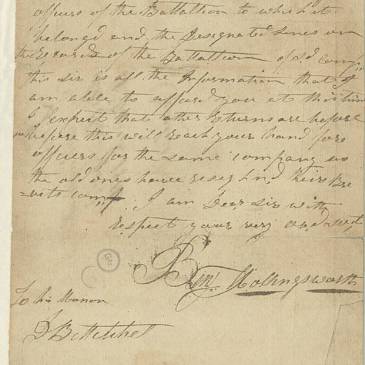 officers of the Battalion to which it
belongd and the Designated Lines on
the Records of the Battalion
this Sir is all the Information that I
am able to afford you at this time
I expect that other Returns are before
before this will reach your hand for
officers for the same company as
the old ones have resignd
I am Dear Sir with
respect your very
Hollingsworth
To his
D B Mitchel